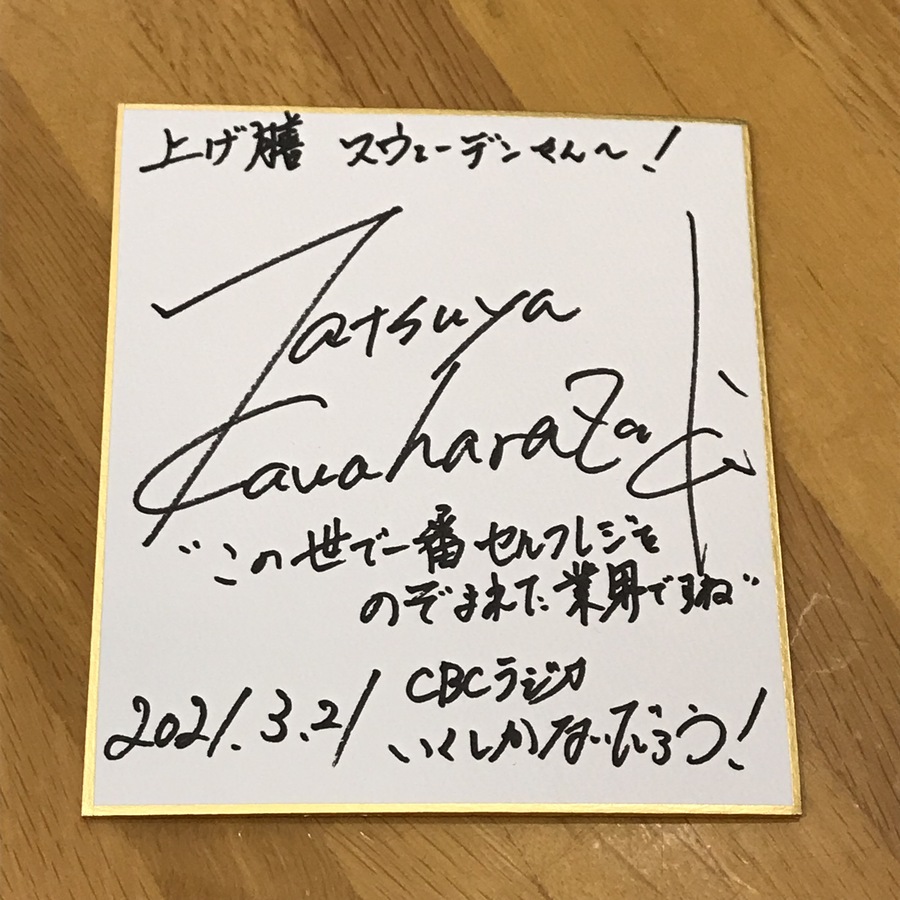 上げ膳 スウェーデンさん〜!
Tatsuya
Kawaharazaki
"この世で一番セルフレジを
のぞまれた業界ですね"
2021.3.21
CBCラジオ
いくしかないだろう!